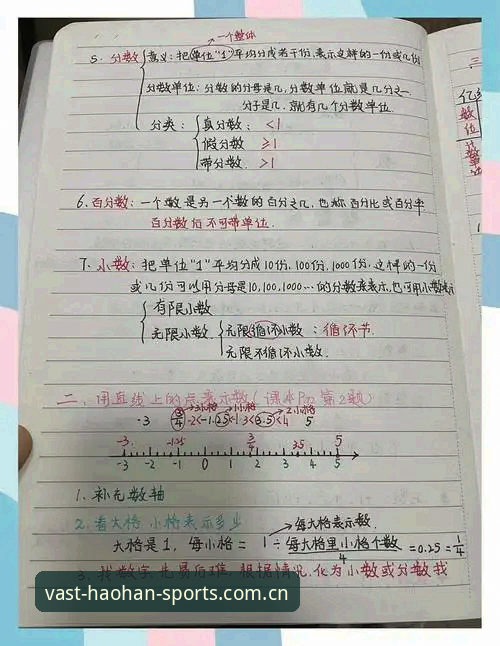 一个整体
5. 分数 意义:把单位"1"平均分成若干份,表示这样的一份或几份
分数单位:分数的分母是几,分数单位就是几分之一
分子是几,就有几个分数单位
分类: 真分数: <1
假分数 ≥1
带分数. >1
6. 百分数: 一个数是另一个数的百分之几,也称百分比或百分率
百分数后不可带单位.
7. 小数: 把单位"1"平均分成10份,100份,1000份.这样的一份
或几份可以用分母是10,100,1000…的分数来表示,也可用小数表示
有限小数
无限小数 无限循环小数: 循环节
无限不循环小数.
二、用直线上的点表示数(课本 第2题)
-3 3/4 -2 < -1.25 < -1 3 < 3.5 < 4 5
-3 -1.25 3/4 3.5 5
-3 -2 -1 0 1 2 3 4 5
1. 补充数轴
2. 看大格 小格表示多少
每大格表示数.
大格是1, 每小格 = 1 ÷ 每大格里小格个数 = 0.25 = 1/4
4
3. 找数字 先易后难, 根据情况,化为小数或分数找
vast-haohan-sports.com.cn
三
亿
数
位